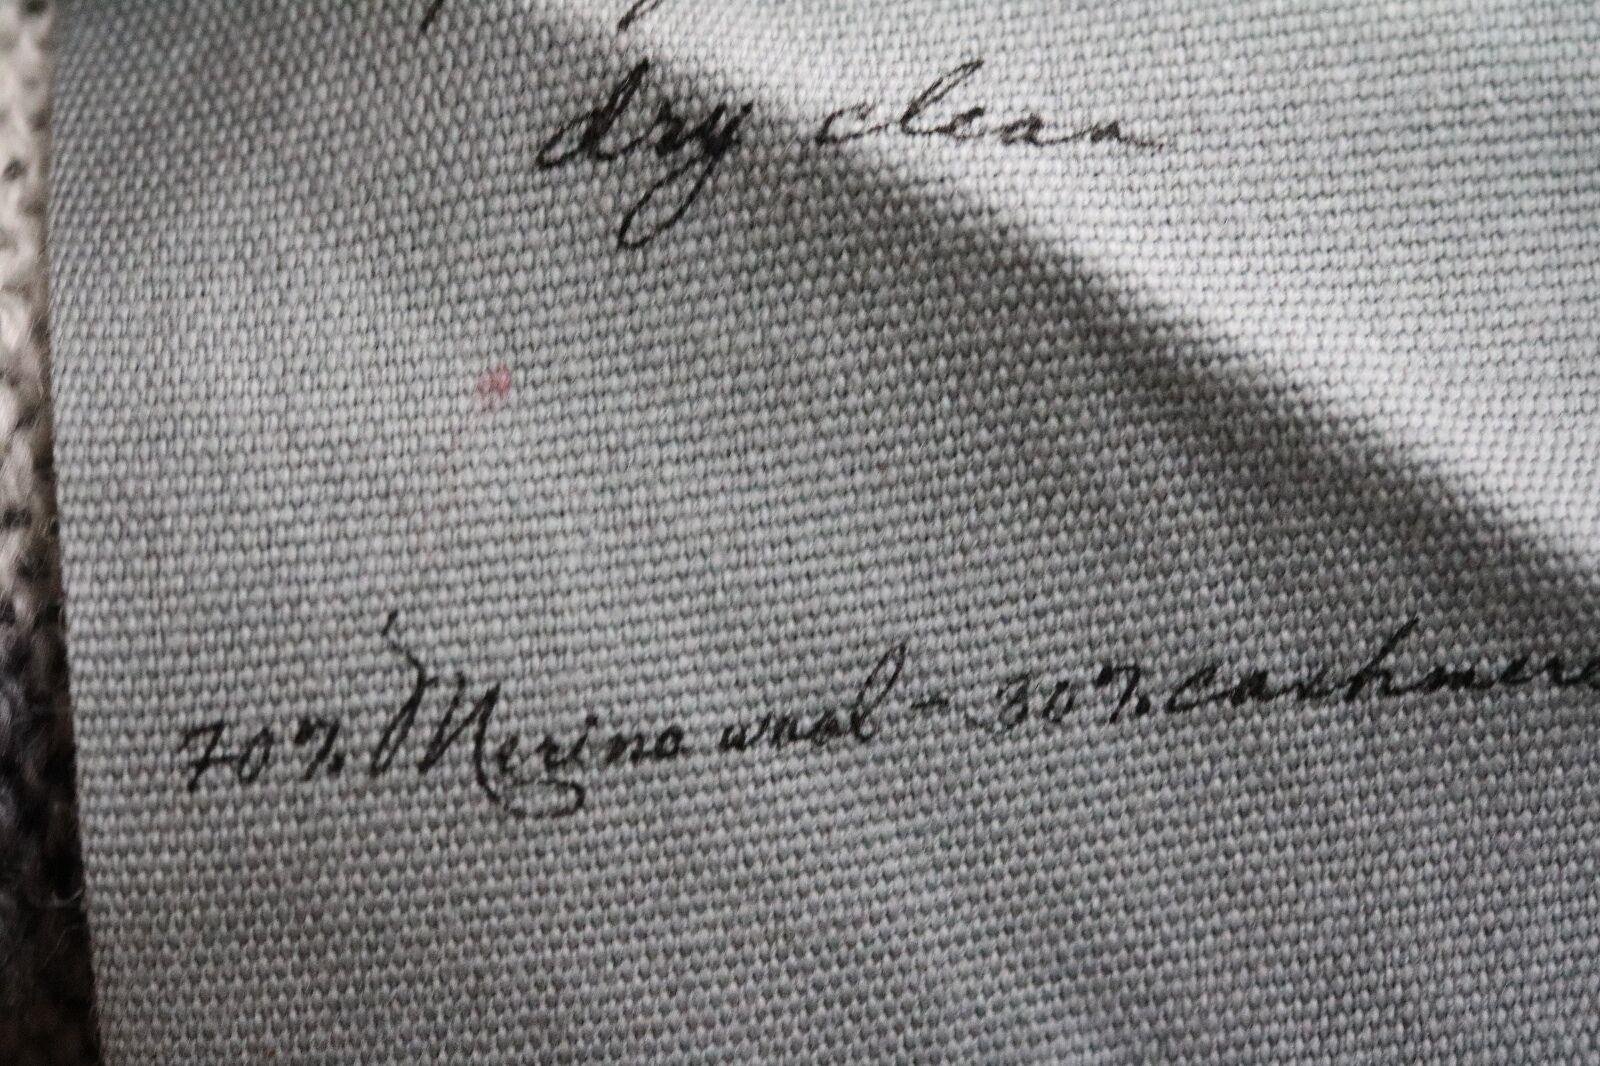 dry clean
70% Merino wool - 30% cashmere